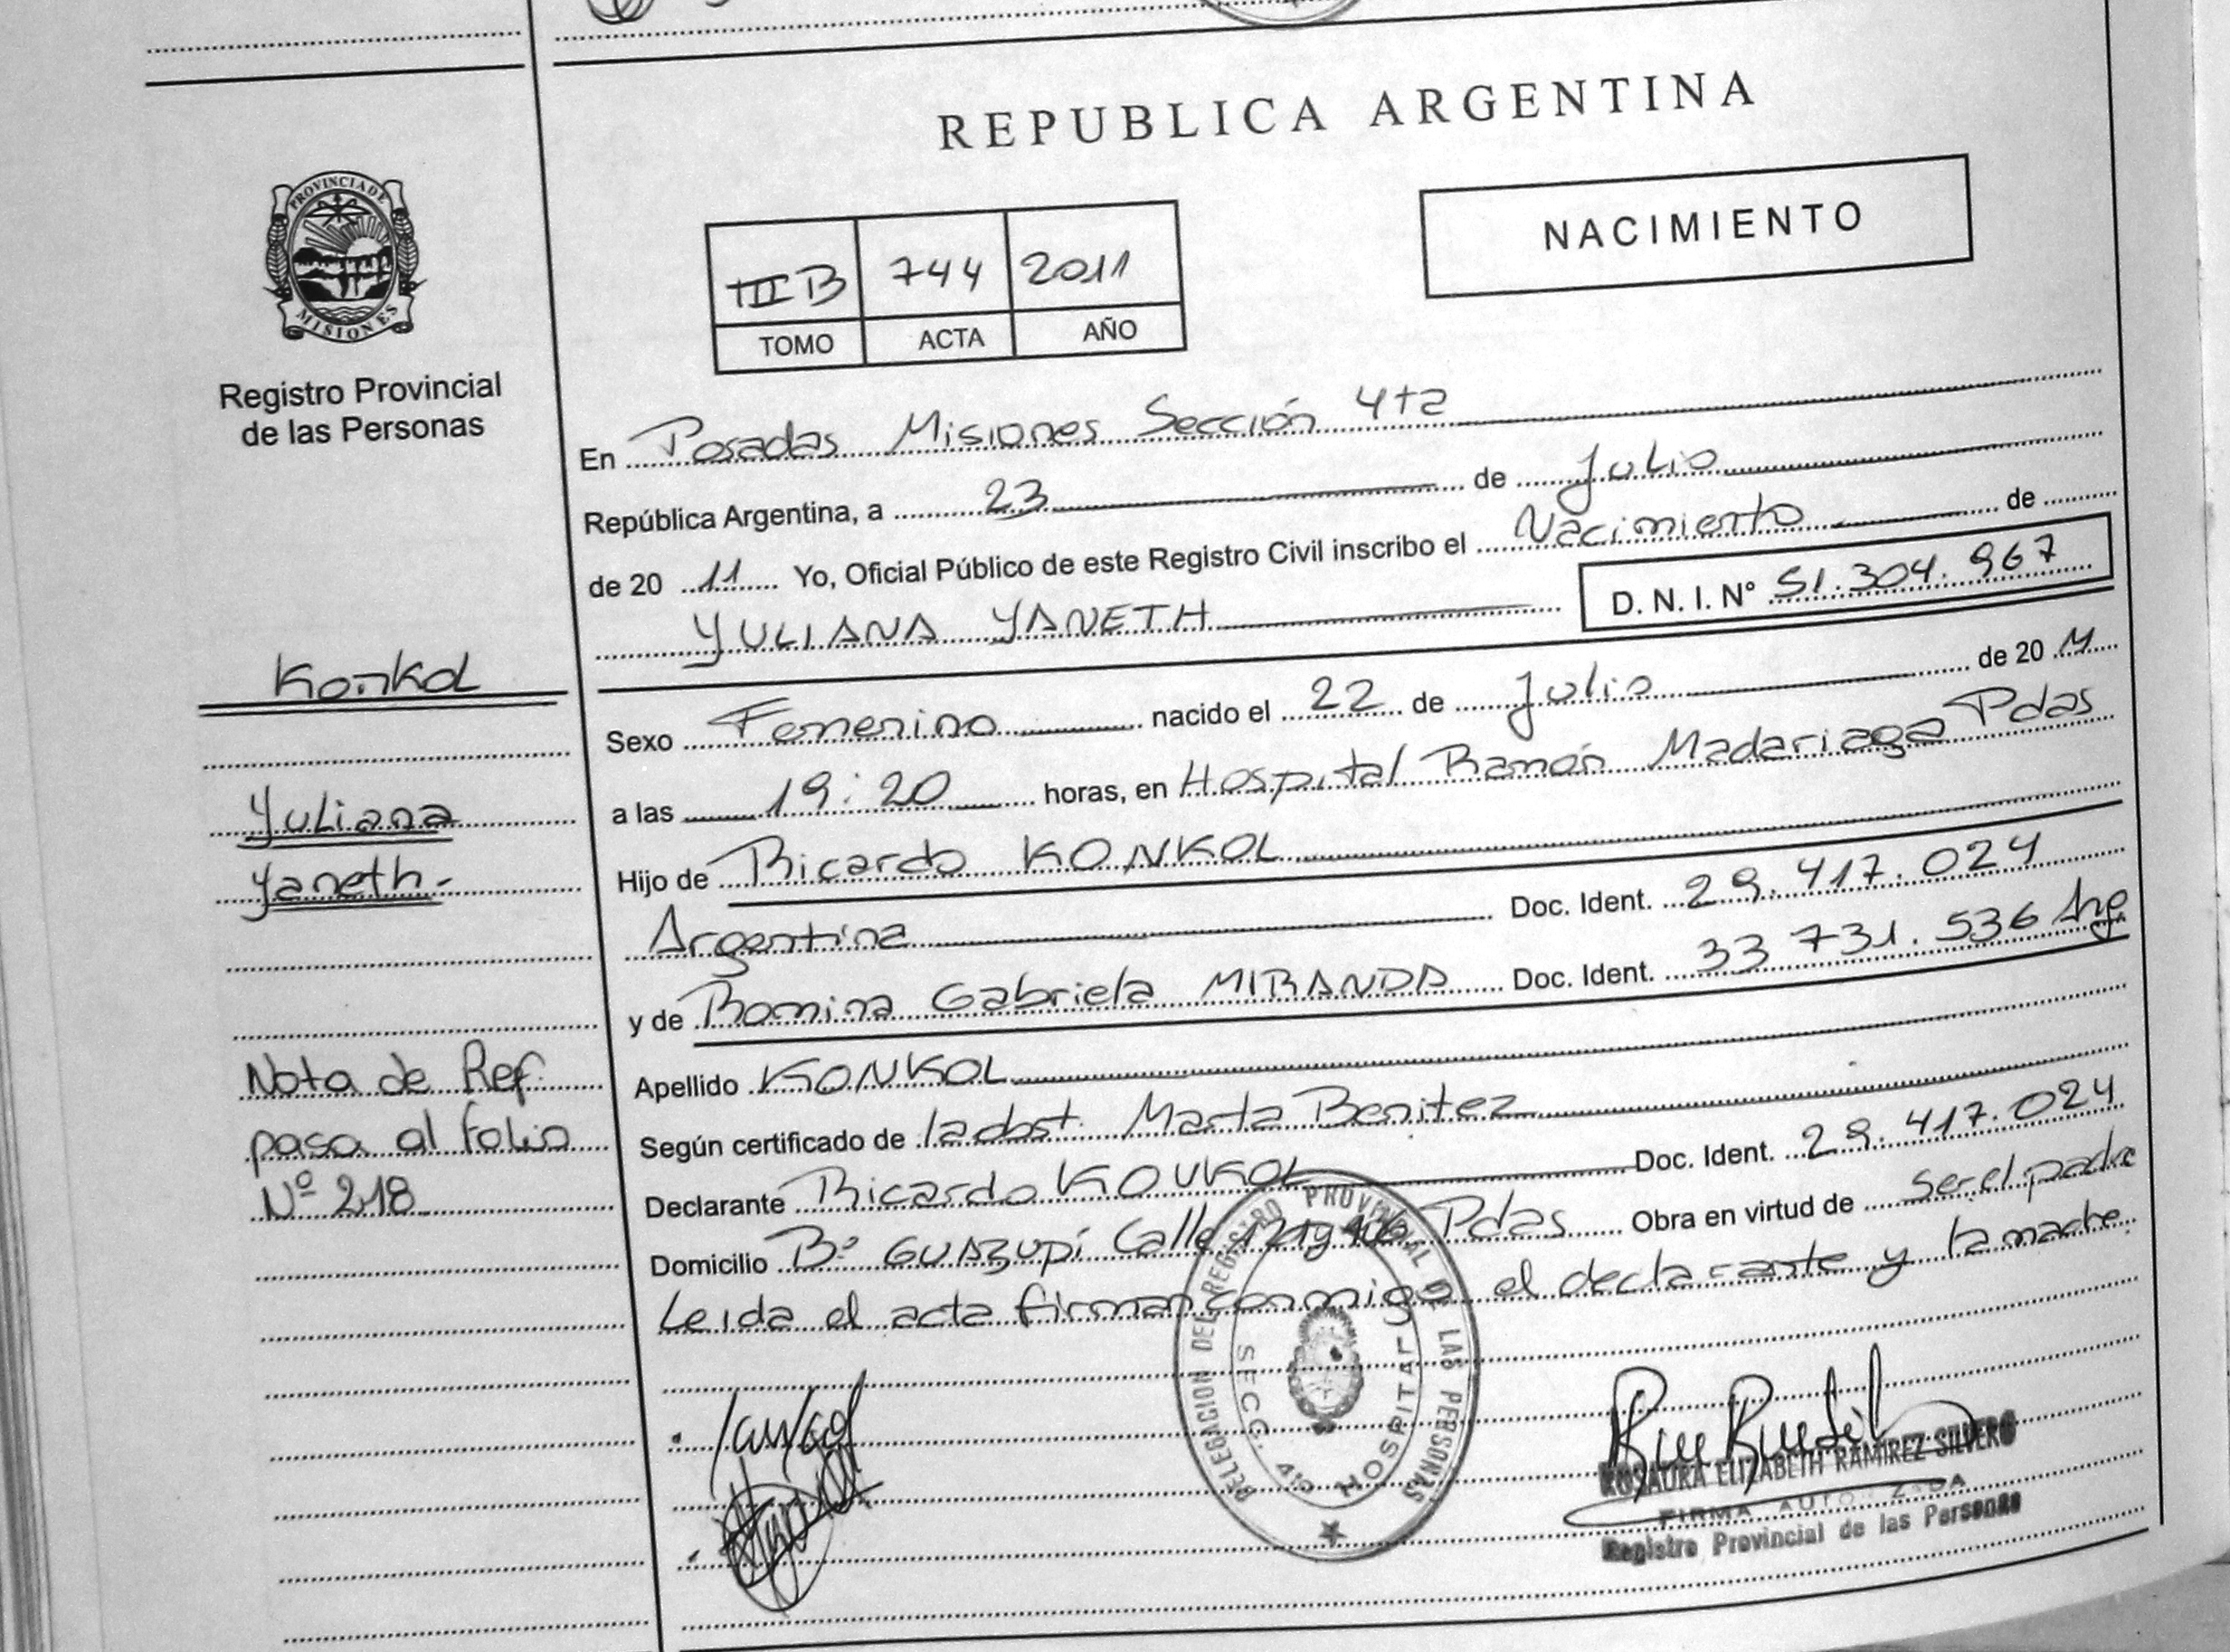 REPUBLICA ARGENTINA
NACIMIENTO
III B 744 2011
TOMO ACTA AÑO
PROVINCIA DE
MISIONES
Registro Provincial
de las Personas
En Posadas Misiones Sección 4ta
República Argentina, a 23 de Julio
de 20 11 Yo, Oficial Público de este Registro Civil inscribo el Nacimiento de
YULIANA YANETH D. N. I. N° 51.304.967
Konkol
Yuliana
Yaneth.-
Sexo Femenino nacido el 22 de Julio de 20 11
a las 19:20 horas, en Hospital Ramón Madariaga Pdas
Hijo de Ricardo KONKOL
Argentina Doc. Ident. 29.417.024
y de Romina Gabriela MIRANDA Doc. Ident. 33 731.536 Arg
Apellido KONKOL
Según certificado de la obst. Marta Benitez
Declarante Ricardo KONKOL Doc. Ident. 29.417.024
Domicilio Bº GUAZUPI Calle Pdas Obra en virtud de Ser el padre
Leida el acta firman conmigo el declarante y la madre.
Nota de Ref.
pasa al folio
Nº 218
DELEGACION DEL REGISTRO PROVINCIAL DE LAS PERSONAS
SECC. HOSPITAL
ROSAURA ELIZABETH RAMIREZ SILVERO
FIRMA AUTORIZADA
Registro Provincial de las Personas